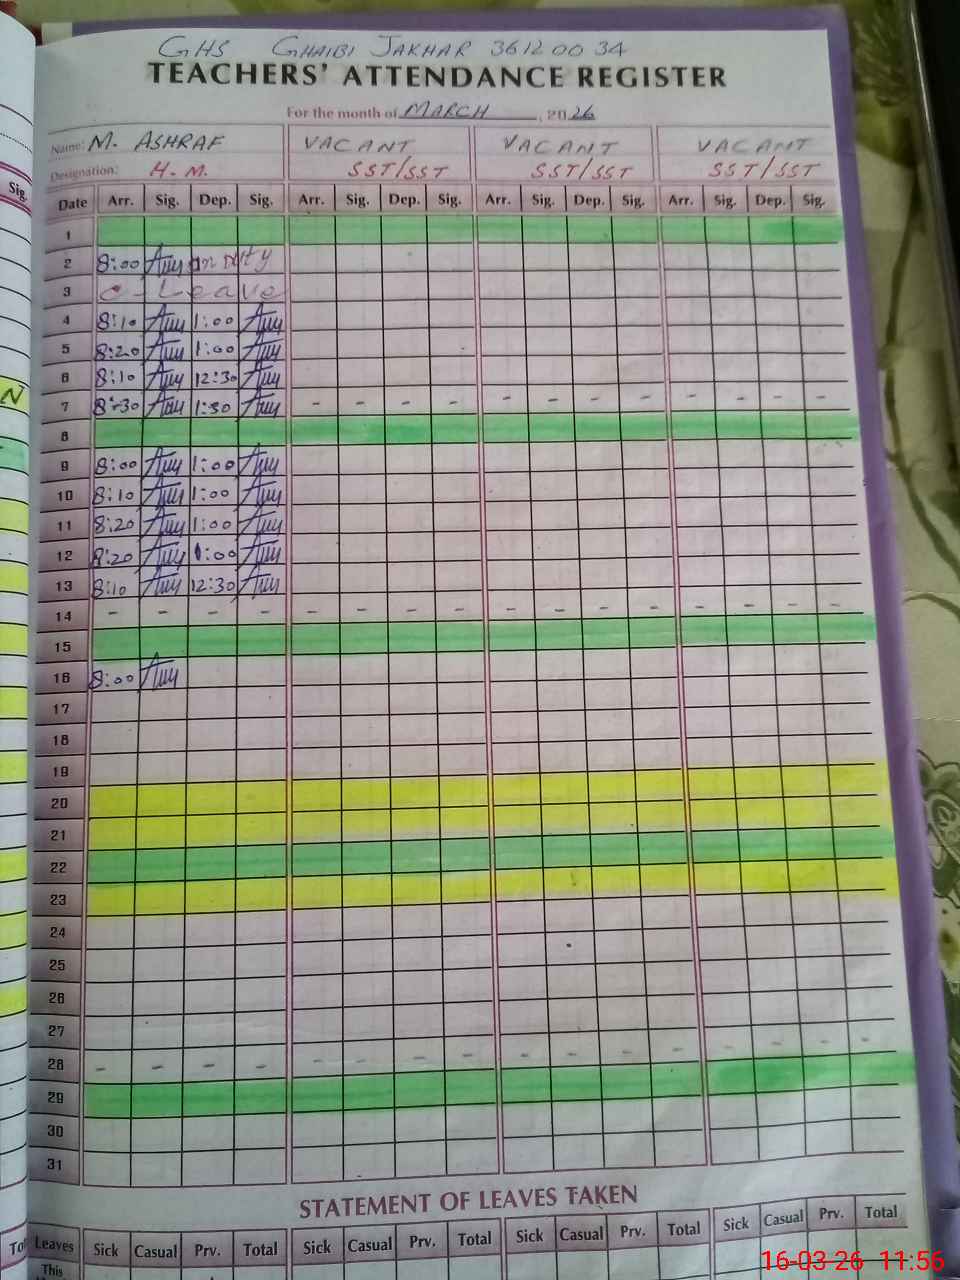 GHS GHAIBI JAKHAR 36120034
TEACHERS' ATTENDANCE REGISTER
For the month of MARCH, 2026
Name: M. ASHRAF VACANT VACANT VACANT
Designation: H.M. SST/SST SST/SST SST/SST
Date Arr. Sig. Dep. Sig. Arr. Sig. Dep. Sig. Arr. Sig. Dep. Sig. Arr. Sig. Dep. Sig.
1
2 8:00 on Duty
3 C-Leave
4 8:10 1:00
5 8:20 1:00
6 8:10 12:30
7 8:30 1:30 - - - - - - - - - - - -
8
9 8:00 1:00
10 8:10 1:00
11 8:20 1:00
12 8:20 1:00
13 8:10 12:30
14 - - - - - - - - - - - - - - - -
15
16 8:00
17
18
19
20
21
22
23
24
25
26
27
28 - - - - - - - - - - - - - - - -
29
30
31
STATEMENT OF LEAVES TAKEN
Leaves Sick Casual Prv. Total Sick Casual Prv. Total Sick Casual Prv. Total Sick Casual Prv. Total
This
Sig.
N
16-03-26 11:56